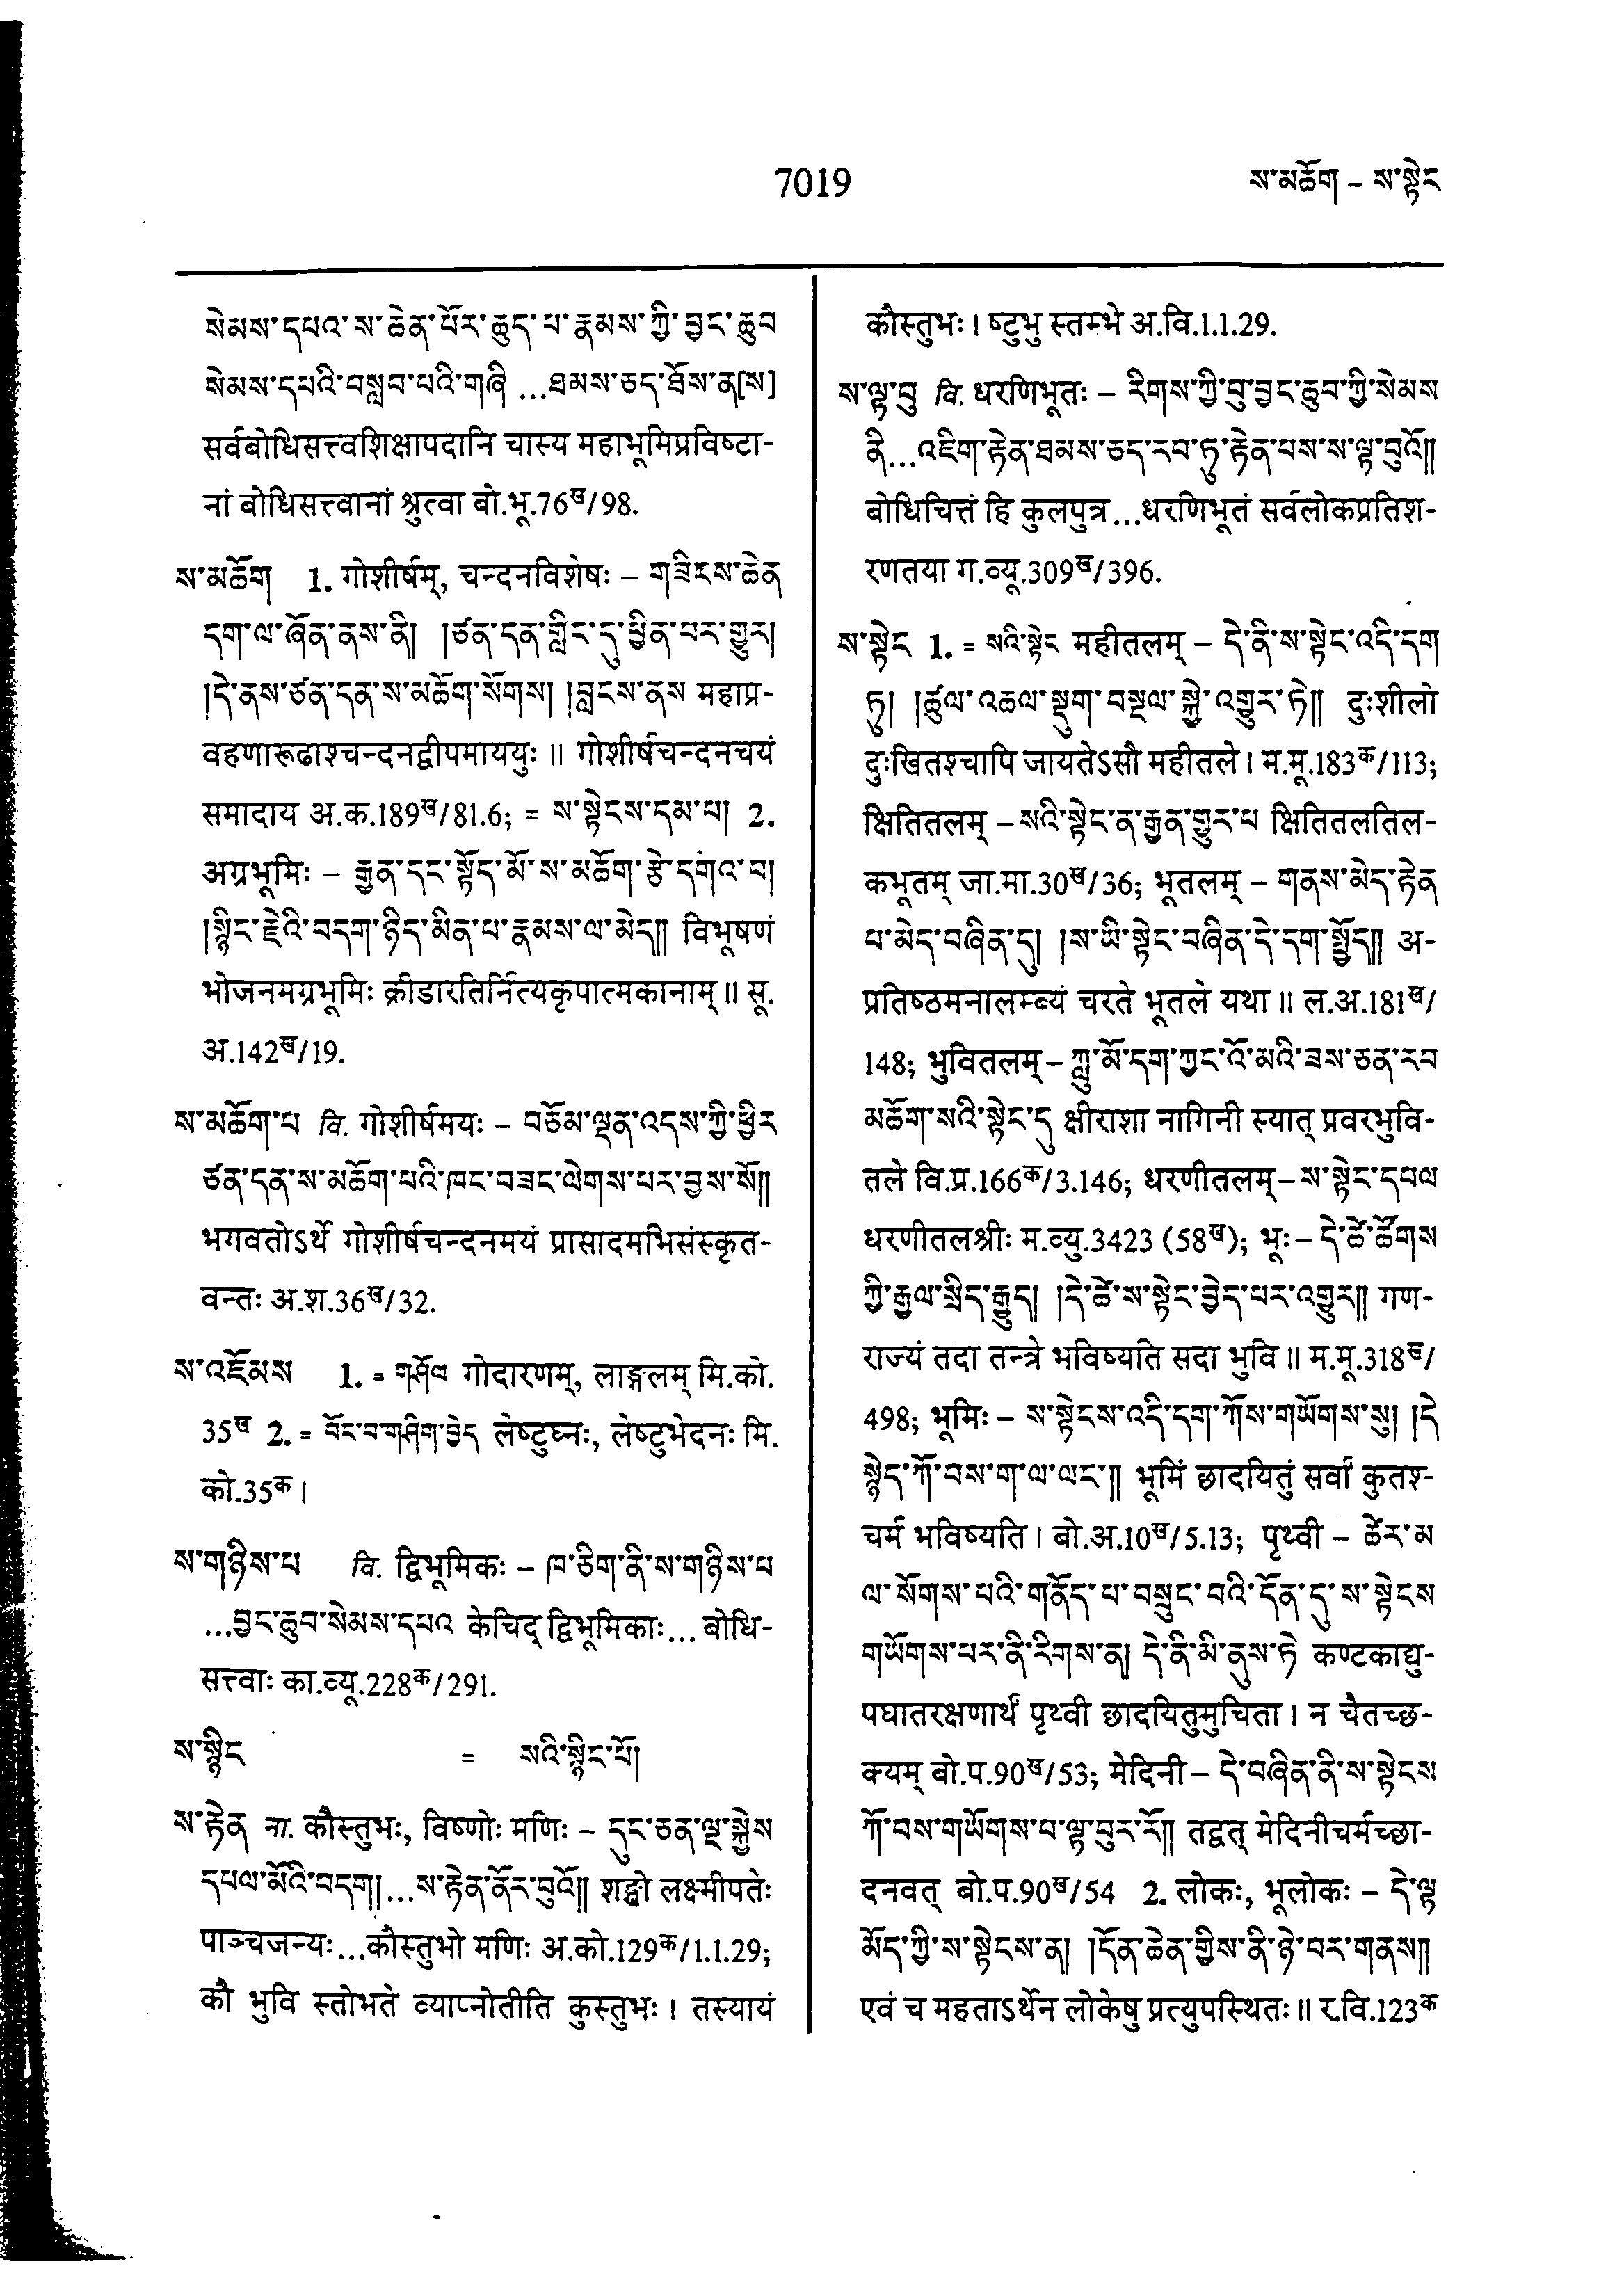 7019
ས་མཆོག – ས་སྟེང
སེམས་དཔའ་ས་ཆེན་པོར་ཆུད་པ་རྣམས་ཀྱི་བྱང་ཆུབ
སེམས་དཔའི་བསླབ་པའི་གཞི ...ཐམས་ཅད་ཐོས་ན[ས]
सर्वबोधिसत्त्वशिक्षापदानि चास्य महाभूमिप्रविष्टा-
नां बोधिसत्त्वानां श्रुत्वा बो.भू.76ख/98.
ས་མཆོག 1. गोशीर्षम्, चन्दनविशेषः – གཟིངས་ཆེན
དག་ལ་ཞོན་ནས་ནི། །ཙན་དན་གླིང་དུ་ཕྱིན་པར་གྱུར།
།དེ་ནས་ཙན་དན་ས་མཆོག་སོགས། །བླངས་ནས महाप्र-
वहणारूढाश्चन्दनद्वीपमाययुः ॥ गोशीर्षचन्दनचयं
समादाय अ.क.189ख/81.6; = ས་སྟེངས་དམ་པ། 2.
अग्रभूमिः – རྒྱན་དང་སྟོད་མོ་ས་མཆོག་རྩེ་དགའ་བ།
།སྙིང་རྗེའི་བདག་ཉིད་མིན་པ་རྣམས་ལ་མེད།། विभूषणं
भोजनमग्रभूमिः क्रीडारतिर्नित्यकृपात्मकानाम् ॥ सू.
अ.142ख/19.
ས་མཆོག་པ वि. गोशीर्षमयः – བཅོམ་ལྡན་འདས་ཀྱི་ཕྱིར
ཙན་དན་ས་མཆོག་པའི་ཁང་བཟང་ལེགས་པར་བྱས་སོ།།
भगवतोऽर्थे गोशीर्षचन्दनमयं प्रासादमभिसंस्कृत-
वन्तः अ.श.36ख/32.
ས་འཇོམས 1. = གཤོལ गोदारणम्, लाङ्गलम् मि.को.
35ख 2. = བོང་བ་གཤིག་བྱེད लेष्टुघ्नः, लेष्टुभेदनः मि.
को.35क ।
ས་གཉིས་པ वि. द्विभूमिकः – ཁ་ཅིག་ནི་ས་གཉིས་པ
...བྱང་ཆུབ་སེམས་དཔའ केचिद् द्विभूमिकाः... बोधि-
सत्त्वाः का.व्यू.228क/291.
ས་སྙིང = སའི་སྙིང་པོ།
ས་རྟེན ना. कौस्तुभः, विष्णोः मणिः – དུང་ཅན་ལྔ་སྐྱེས
དཔལ་མོའི་བདག།...ས་རྟེན་ནོར་བུའོ།། शङ्खो लक्ष्मीपतेः
पाञ्चजन्यः...कौस्तुभो मणिः अ.को.129क/1.1.29;
कौ भुवि स्तोभते व्याप्नोतीति कुस्तुभः । तस्यायं
कौस्तुभः । ष्टुभु स्तम्भे अ.वि.1.1.29.
ས་ལྟ་བུ वि. धरणिभूतः – རིགས་ཀྱི་བུ་བྱང་ཆུབ་ཀྱི་སེམས
ནི...འཇིག་རྟེན་ཐམས་ཅད་རབ་ཏུ་རྟེན་པས་ས་ལྟ་བུའོ།།
बोधिचित्तं हि कुलपुत्र...धरणिभूतं सर्वलोकप्रतिश-
रणतया ग.व्यू.309ख/396.
ས་སྟེང 1. = སའི་སྟེང महीतलम् – དེ་ནི་ས་སྟེང་འདི་དག
ཏུ། །ཚུལ་འཆལ་སྡུག་བསྔལ་སྐྱེ་འགྱུར་ཏེ།། दुःशीलो
दुःखितश्चापि जायतेऽसौ महीतले । म.मू.183क/113;
क्षितितलम् – སའི་སྟེང་ན་རྒྱན་གྱུར་པ क्षितितलतिल-
कभूतम् जा.मा.30ख/36; भूतलम् – གནས་མེད་རྟེན
པ་མེད་བཞིན་དུ། །ས་ཡི་སྟེང་བཞིན་དེ་དག་སྤྱོད།། अ-
प्रतिष्ठमनालम्ब्यं चरते भूतले यथा ॥ ल.अ.181ख/
148; भुवितलम् – ཀླུ་མོ་དག་ཀྱང་འོ་མའི་ཟས་ཅན་རབ
མཆོག་སའི་སྟེང་དུ क्षीराशा नागिनी स्यात् प्रवरभुवि-
तले वि.प्र.166क/3.146; धरणीतलम् – ས་སྟེང་དཔལ
धरणीतलश्रीः म.व्यु.3423 (58ख); भूः – དེ་ཚེ་ཚོགས
ཀྱི་རྒྱལ་སྲིད་རྒྱུད། །དེ་ཚེ་ས་སྟེང་བྱེད་པར་འགྱུར།། गण-
राज्यं तदा तन्त्रे भविष्यति सदा भुवि ॥ म.मू.318ख/
498; भूमिः – ས་སྟེངས་འདི་དག་ཀོས་གཡོགས་སུ། །དེ
སྙེད་ཀོ་བས་ག་ལ་ལང་།། भूमिं छादयितुं सर्वां कुतश्-
चर्म भविष्यति । बो.अ.10ख/5.13; पृथ्वी – ཚེར་མ
ལ་སོགས་པའི་གནོད་པ་བསྲུང་བའི་དོན་དུ་ས་སྟེངས
གཡོགས་པར་ནི་རིགས་ན། དེ་ནི་མི་ནུས་ཏེ कण्टकाद्यु-
पघातरक्षणार्थं पृथ्वी छादयितुमुचिता । न चैतच्छ-
क्यम् बो.प.90ख/53; मेदिनी – དེ་བཞིན་ནི་ས་སྟེངས
ཀོ་བས་གཡོགས་པ་ལྟ་བུར་རོ།། तद्वत् मेदिनीचर्मच्छा-
दनवत् बो.प.90ख/54 2. लोकः, भूलोकः – དེ་ལྟ
མོད་ཀྱི་ས་སྟེངས་ན། །དོན་ཆེན་གྱིས་ནི་ཉེ་བར་གནས།།
एवं च महताऽर्थेन लोकेषु प्रत्युपस्थितः ॥ र.वि.123क